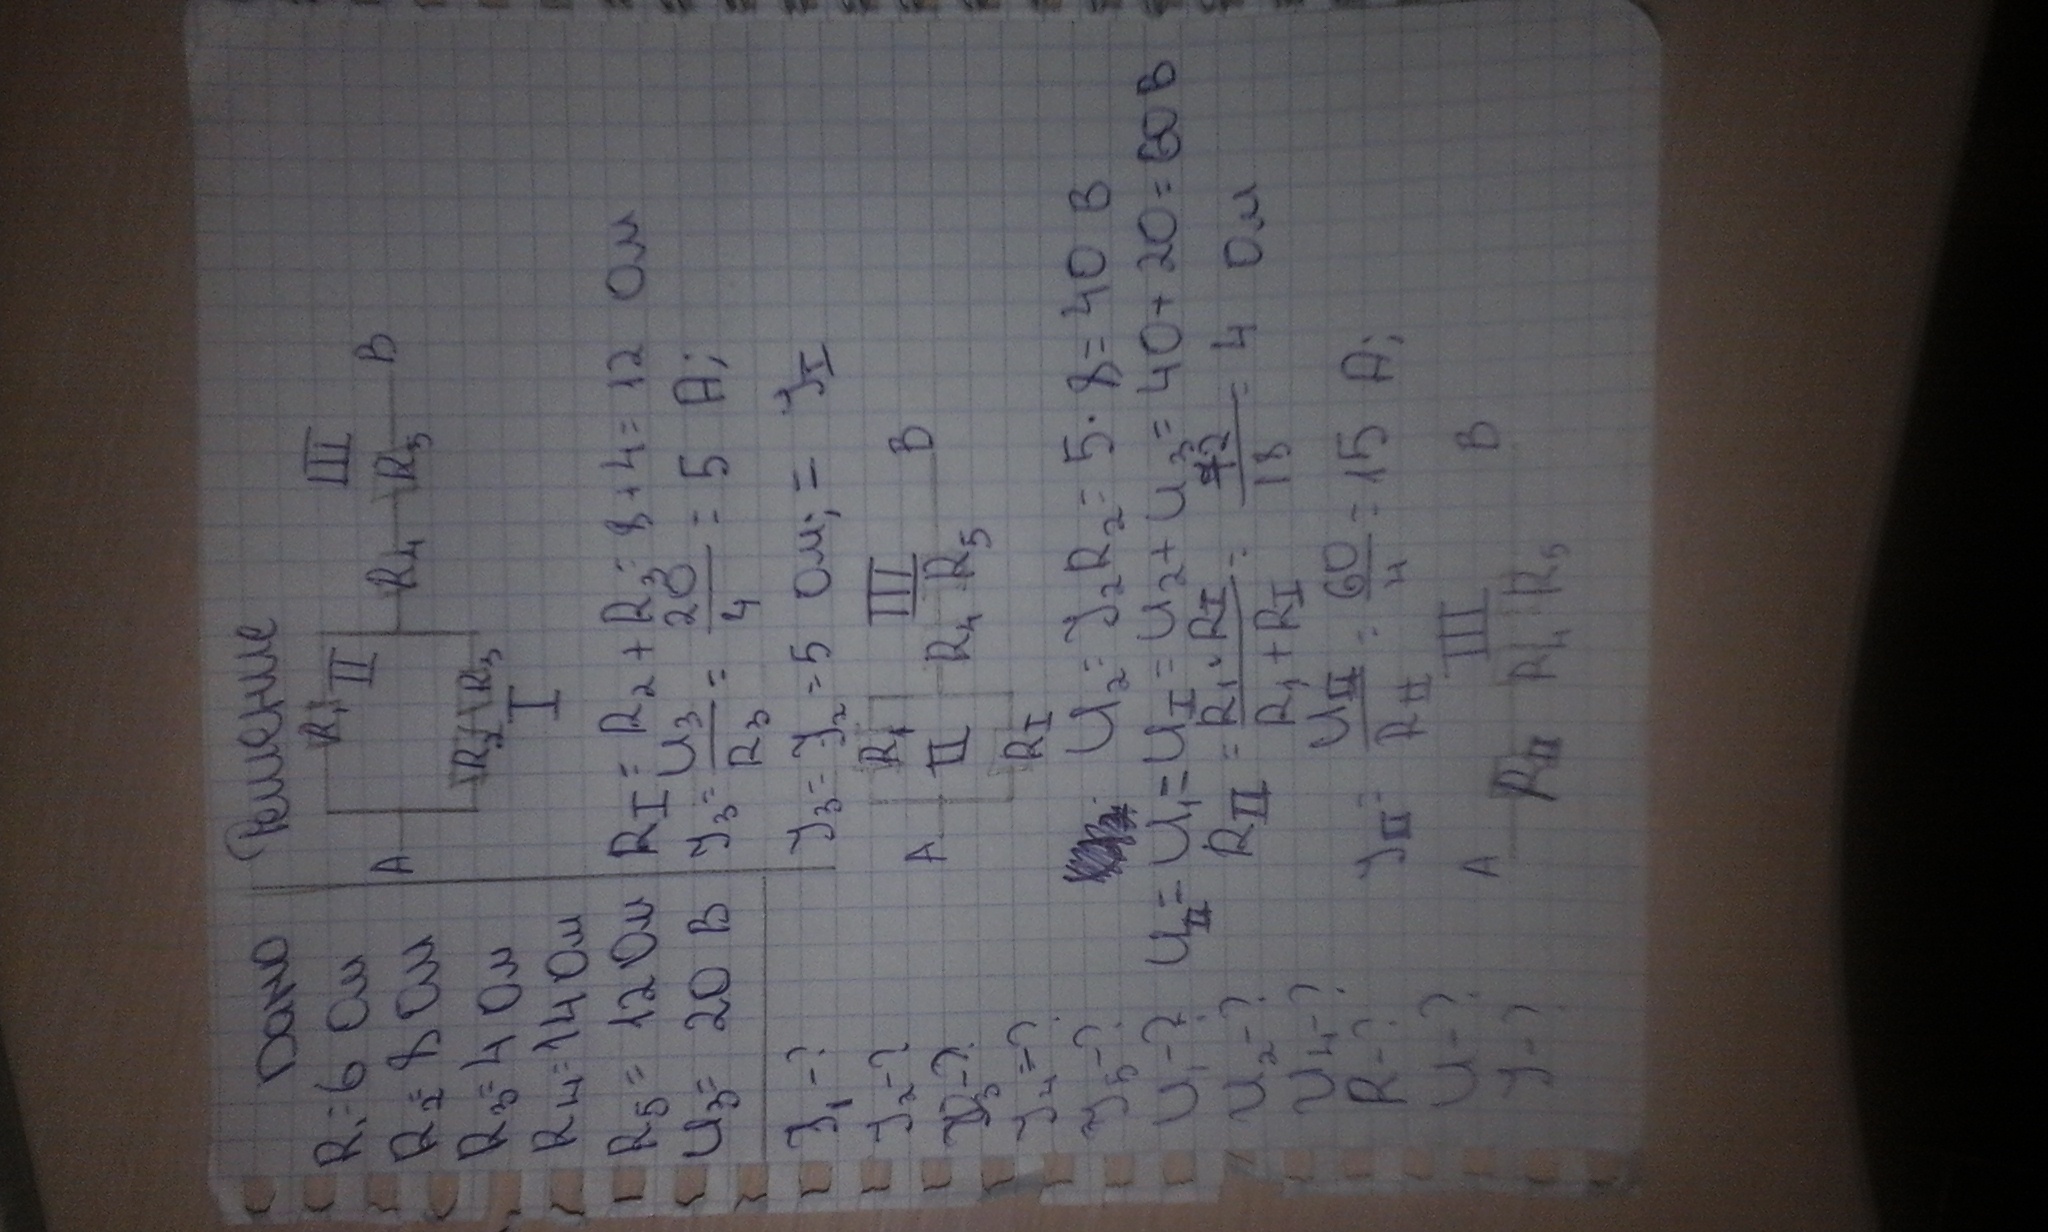 Дано
R₁=6 Ом
R₂=8 Ом
R₃=4 Ом
R₄=14 Ом
R₅=12 Ом
U₃=20 В
J₁-?
J₂-?
J₃-?
J₄=?
J₅-?
U₁-?
U₂-?
U₄-?
R-?
U-?
J-?
Решение
R₁ II III
A R₄ R₅ B
R₂ R₃
I
R_I = R₂ + R₃ = 8+4=12 Ом
J₃ = U₃/R₃ = 20/4 = 5 А;
J₃ = J₂ = 5 Ом; = J_I
R₁ III
A II R₄ R₅ B
R_I
U₂ = J₂R₂ = 5·8=40 В
U_II = U₁ = U_I = U₂ + U₃ = 40+20=60В
R_II = R₁·R_I/R₁+R_I = 72/18 = 4 Ом
J_II = U_II/R_II = 60/4 = 15 А;
A III B
R_II R₄ R₅